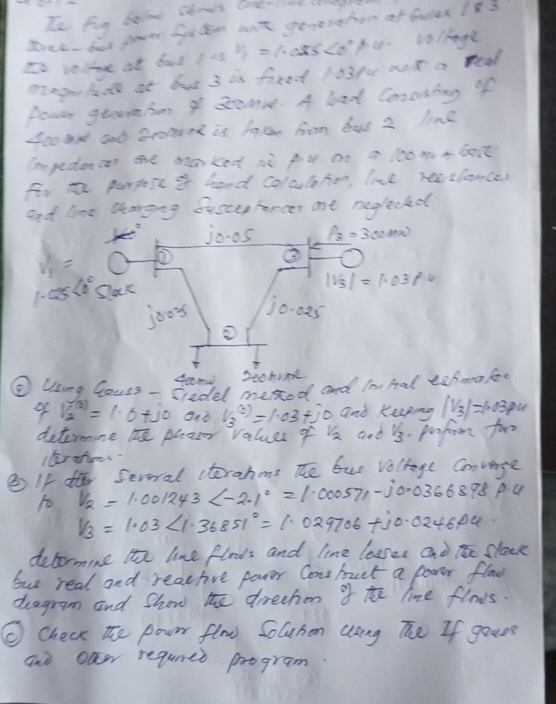 The fig below shows one-line diagram
three-bus power system with generation at buses 1 & 3
The voltage at bus 1 is V₁ = 1.025∠0° P.u. Voltage
magnitude at bus 3 is fixed 1.03Pu with a real
power generation of 300MW. A load Consisting of
400MW and 200MVAR is taken from bus 2 line
impedances are marked in p.u on a 100 MVA base
For the purpose of hand calculation, line resistances
and line charging Susceptances are neglected
j0.05
P₃ = 300MW
V₁ =
1.025∠0° Slack
①
③
|V₃| = 1.03 P.u
j0.025
j0.025
②
400MW 200MVAR
ⓐ Using Gauss-Siedel method and Initial estimates
of V₂⁽⁰⁾ = 1.0+j0 and V₃⁽⁰⁾ = 1.03+j0 and Keeping |V₃|=1.03pu
determine the phasor values of V₂ and V₃. perform two
iterations.
ⓑ If after Several iterations the bus Voltage Converge
to V₂ = 1.001243 ∠-2.1° = 1.000571 - j0.0366898 P.u
V₃ = 1.03∠1.36851° = 1.029706 + j0.0246Pu.
determine the line flows and line losses and the slack
bus real and reactive power Construct a power flow
diagram and Show the direction of the line flows.
ⓒ Check the power flow Solution using the lf gauss
and other required program.